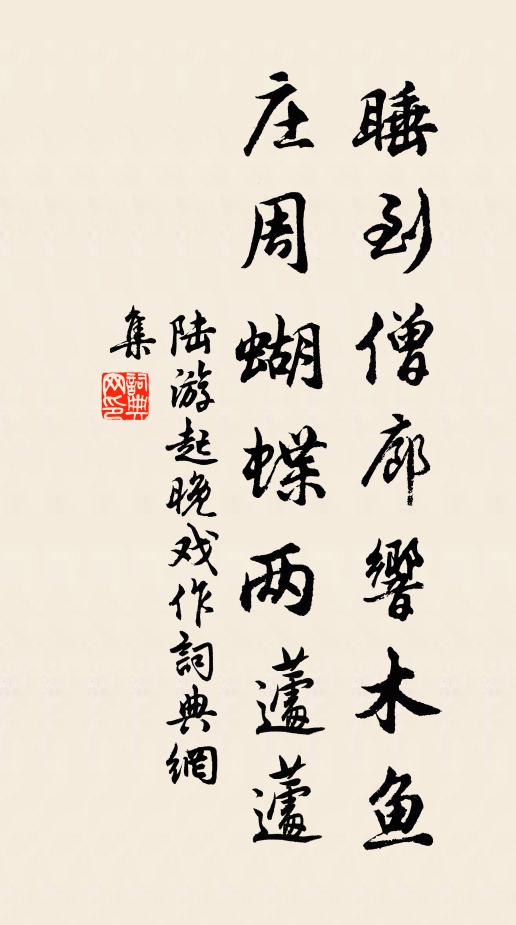 睡到僧廊響木鱼
庄周蝴蝶两蘧蘧
陆游起晚戏作詞典網
集
詞典
网印